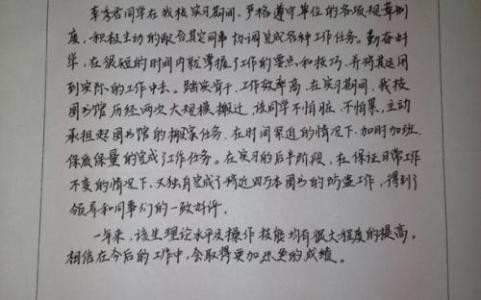 同学在我校实习期间，严格遵守单位的各项规章制
度，积极主动的配合其它同事协调完成各种工作任务。勤奋好
学，在很短的时间内就掌握了工作的要点和技巧，并将其运用
到实际的工作中去。踏实肯干，工作效率高，在实习期间，我校
图书馆历经两次大规模搬迁，该同学不怕脏、不怕累，主动
承担起图书馆的搬家任务，在时间紧迫的情况下，加时加班，
保质保量的完成了工作任务。在实习的后半阶段，在保证日常工作
不变的情况下，又独自完成了将近四万本图书的防盗工作，得到了
领导和同事们的一致好评。
一年来，该生理论水平及操作技能均有很大程度的提高，
相信在今后的工作中，会取得更加的成绩。